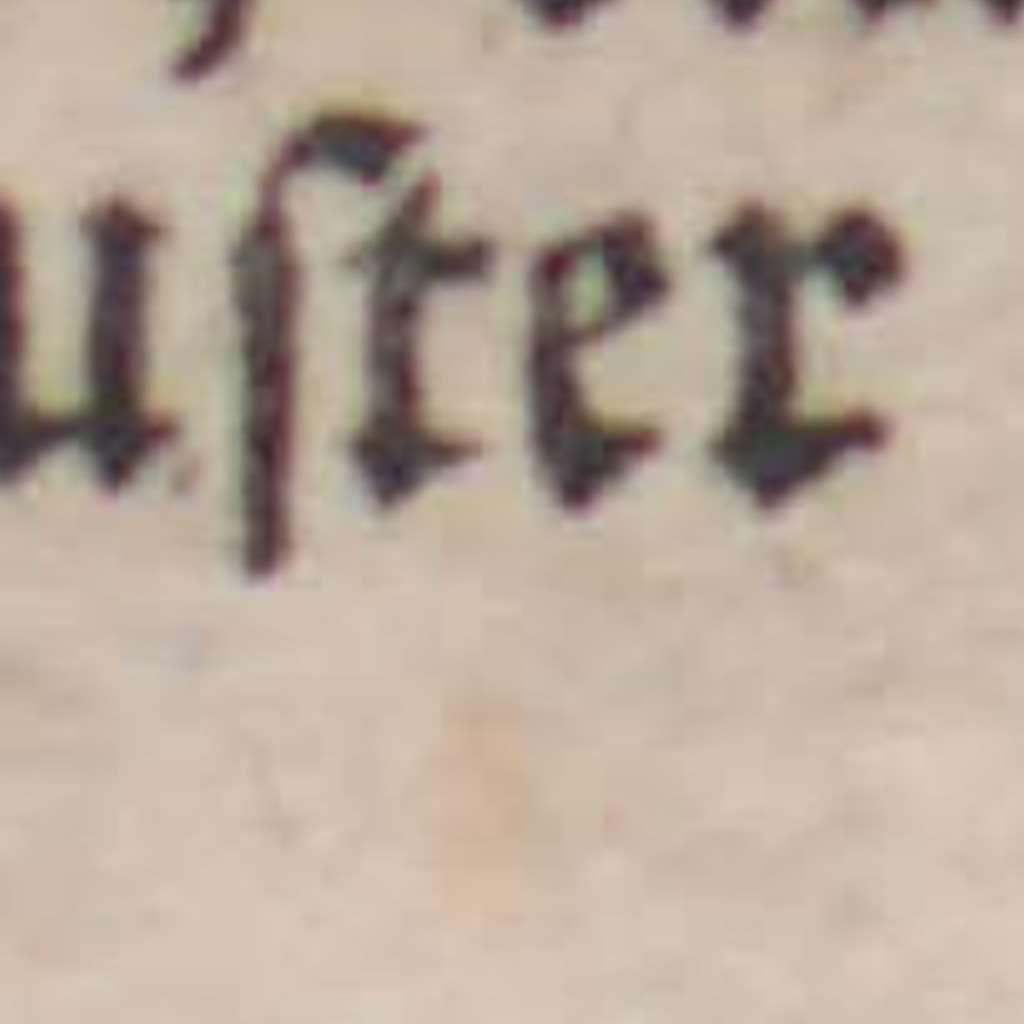 uſter